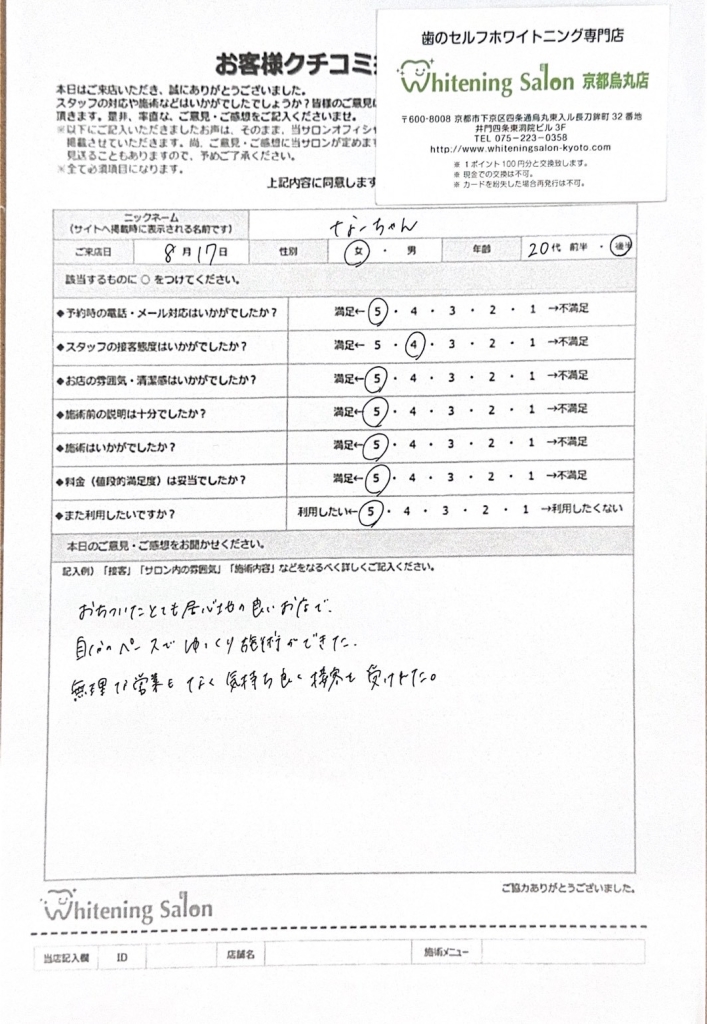 歯のセルフホワイトニング専門店
Whitening Salon 京都烏丸店
〒600-8008 京都市下京区四条通烏丸東入ル長刀鉾町 32 番地
井門四条東洞院ビル 3F
TEL 075-223-0358
http://www.whiteningsalon-kyoto.com
※ 1ポイント100円分と交換致します。
※ 現金での交換は不可。
※ カードを紛失した場合再発行は不可。
お客様クチコミ
本日はご来店いただき、誠にありがとうございました。
スタッフの対応や施術などはいかがでしたでしょうか？皆様のご意見
頂きます。是非、率直な、ご意見・ご感想をご記入くださいませ。
※以下にご記入いただきましたお声は、そのまま、当サロンオフィシ
掲載させていただきます。尚、ご意見・ご感想に当サロンが定めま
見送ることもありますので、予めご了承ください。
※全て必須項目になります。
上記内容に同意します
ニックネーム
（サイトへ掲載時に表示される名前です）
なーちゃん
ご来店日 8月17日 性別 女 ・ 男 年齢 20代 前半 ・ 後半
該当するものに ○ をつけてください。
◆予約時の電話・メール対応はいかがでしたか？ 満足← 5 ・ 4 ・ 3 ・ 2 ・ 1 →不満足
◆スタッフの接客態度はいかがでしたか？ 満足← 5 ・ 4 ・ 3 ・ 2 ・ 1 →不満足
◆お店の雰囲気・清潔感はいかがでしたか？ 満足← 5 ・ 4 ・ 3 ・ 2 ・ 1 →不満足
◆施術前の説明は十分でしたか？ 満足← 5 ・ 4 ・ 3 ・ 2 ・ 1 →不満足
◆施術はいかがでしたか？ 満足← 5 ・ 4 ・ 3 ・ 2 ・ 1 →不満足
◆料金（値段的満足度）は妥当でしたか？ 満足← 5 ・ 4 ・ 3 ・ 2 ・ 1 →不満足
◆また利用したいですか？ 利用したい← 5 ・ 4 ・ 3 ・ 2 ・ 1 →利用したくない
本日のご意見・ご感想をお聞かせください。
記入例）「接客」「サロン内の雰囲気」「施術内容」などをなるべく詳しくご記入ください。
おちついたとても居心地の良いお店で、
自分のペースでゆっくり施術ができた。
無理な営業もなく気持ち良く接客も受けれた。
ご協力ありがとうございました。
Whitening Salon
当店記入欄 ID 店舗名 施術メニュー